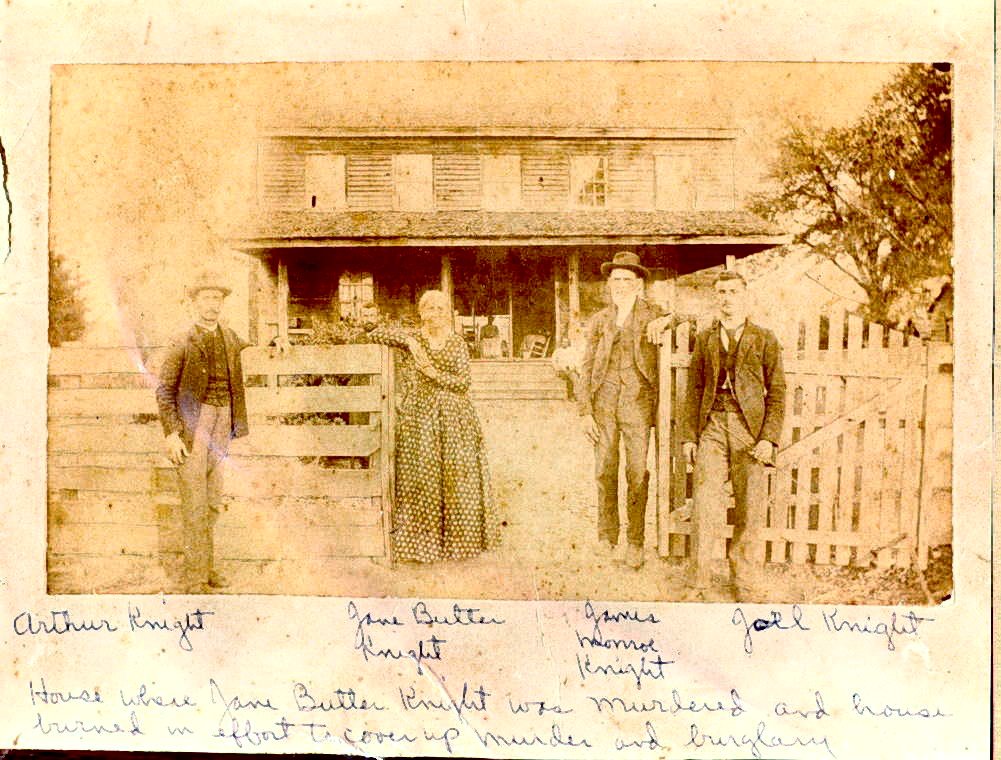 Arthur Knight
Jane Butler
Knight
James
Monroe
Knight
Joel Knight
House where Jane Butler Knight was murdered and house
burned in effort to cover up murder and burglary